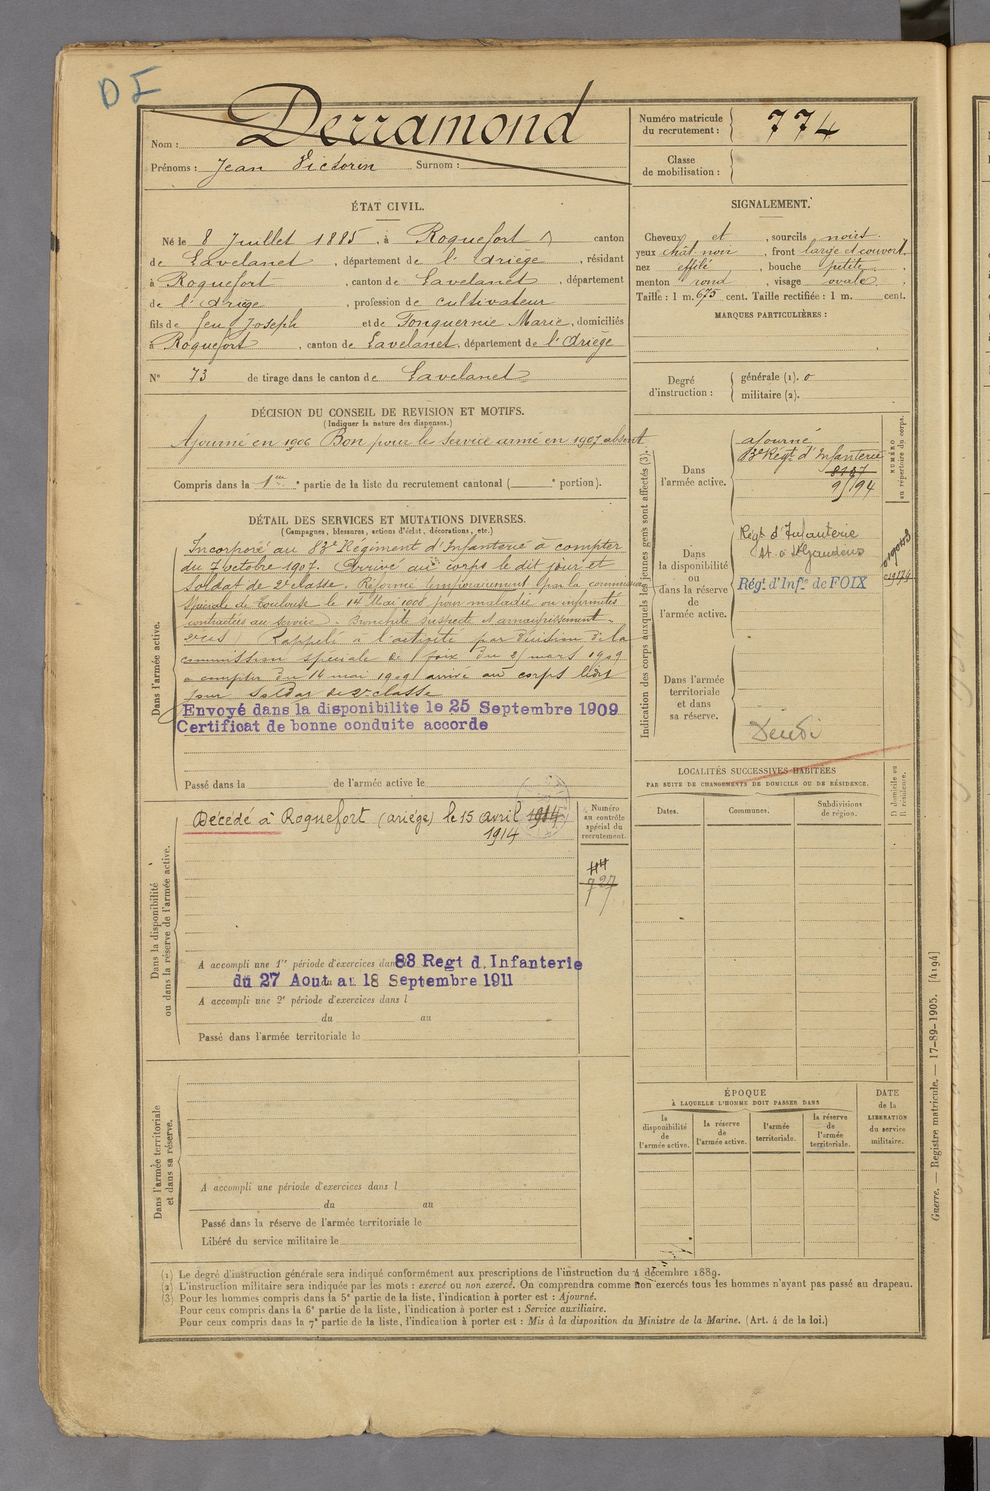 DI
Nom : Derramond
Prénoms : Jean Victorin Surnom :
Numéro matricule du recrutement : 774
Classe de mobilisation :
ÉTAT CIVIL.
Né le 8 Juillet 1885, à Roquefort canton
de Lavelanet, département de l'Ariège, résidant
à Roquefort, canton de Lavelanet, département
de l'Ariège, profession de cultivateur
fils de feu Joseph et de Fonquernie Marie, domiciliés
à Roquefort, canton de Lavelanet, département de l'Ariège
N° 73 de tirage dans le canton de Lavelanet
SIGNALEMENT.
Cheveux et, sourcils noirs
yeux chât noir, front large et couvert,
nez effilé, bouche petite,
menton rond, visage ovale
Taille : 1 m. 675 cent. Taille rectifiée : 1 m. cent.
MARQUES PARTICULIÈRES :
Degré d'instruction : générale (1). 0
militaire (2).
DÉCISION DU CONSEIL DE REVISION ET MOTIFS.
(Indiquer la nature des dispenses.)
Ajourné en 1906 Bon pour le service armé en 1907 absent
Compris dans la 1re partie de la liste du recrutement cantonal ( e portion).
DÉTAIL DES SERVICES ET MUTATIONS DIVERSES.
(Campagnes, blessures, actions d'éclat, décorations, etc.)
Dans l'armée active.
Incorporé au 83e Régiment d'Infanterie à compter
du 7 octobre 1907. Arrivé au corps le dit jour et
Soldat de 2e classe. Réformé temporairement par la commission
spéciale de Toulouse le 14 Mai 1908 pour maladie ou infirmités
contractées au service. Bronchite suspecte et amaigrissement
Rappelé à l'activité par décision de la
commission spéciale de Foix du 21 mars 1909
à compter du 14 mai 1909 arrivé au corps le dit
jour soldat de 2e classe
Envoyé dans la disponibilite le 25 Septembre 1909
Certificat de bonne conduite accorde
Passé dans la de l'armée active le
Indication des corps auxquels les jeunes gens sont affectés (3).
NUMÉRO au répertoire du corps.
Dans l'armée active.
ajourné
83e Régt d'Infanterie
8187
9194
Dans la disponibilité ou dans la réserve de l'armée active.
Régt d'Infanterie
St Gaudens
Régt. d'Infie de FOIX
Dans l'armée territoriale et dans sa réserve.
LOCALITÉS SUCCESSIVES HABITÉES
PAR SUITE DE CHANGEMENTS DE DOMICILE OU DE RÉSIDENCE.
Dates. Communes. Subdivisions de région. D domicile ou R résidence.
Dans la disponibilité ou dans la réserve de l'armée active.
Décédé à Roquefort (ariège) le 15 avril 1914
1914
Numéro au contrôle spécial du recrutement.
727
A accompli une 1re période d'exercices dans 83 Regt d. Infanterie
du 27 Aout au 18 Septembre 1911
A accompli une 2e période d'exercices dans l
du au
Passé dans l'armée territoriale le
Dans l'armée territoriale et dans sa réserve.
A accompli une période d'exercices dans l
du au
Passé dans la réserve de l'armée territoriale le
Libéré du service militaire le
ÉPOQUE
À LAQUELLE L'HOMME DOIT PASSER DANS
la disponibilité de l'armée active.
la réserve de l'armée active.
l'armée territoriale.
la réserve de l'armée territoriale.
DATE de la LIBÉRATION du service militaire.
(1) Le degré d'instruction générale sera indiqué conformément aux prescriptions de l'instruction du 4 décembre 1889.
(2) L'instruction militaire sera indiquée par les mots : exercé ou non exercé. On comprendra comme non exercés tous les hommes n'ayant pas passé au drapeau.
(3) Pour les hommes compris dans la 5e partie de la liste, l'indication à porter est : Ajourné.
Pour ceux compris dans la 6e partie de la liste, l'indication à porter est : Service auxiliaire.
Pour ceux compris dans la 7e partie de la liste, l'indication à porter est : Mis à la disposition du Ministre de la Marine. (Art. 4 de la loi.)
Guerre. — Registre matricule. — 17-89-1905. [4194]